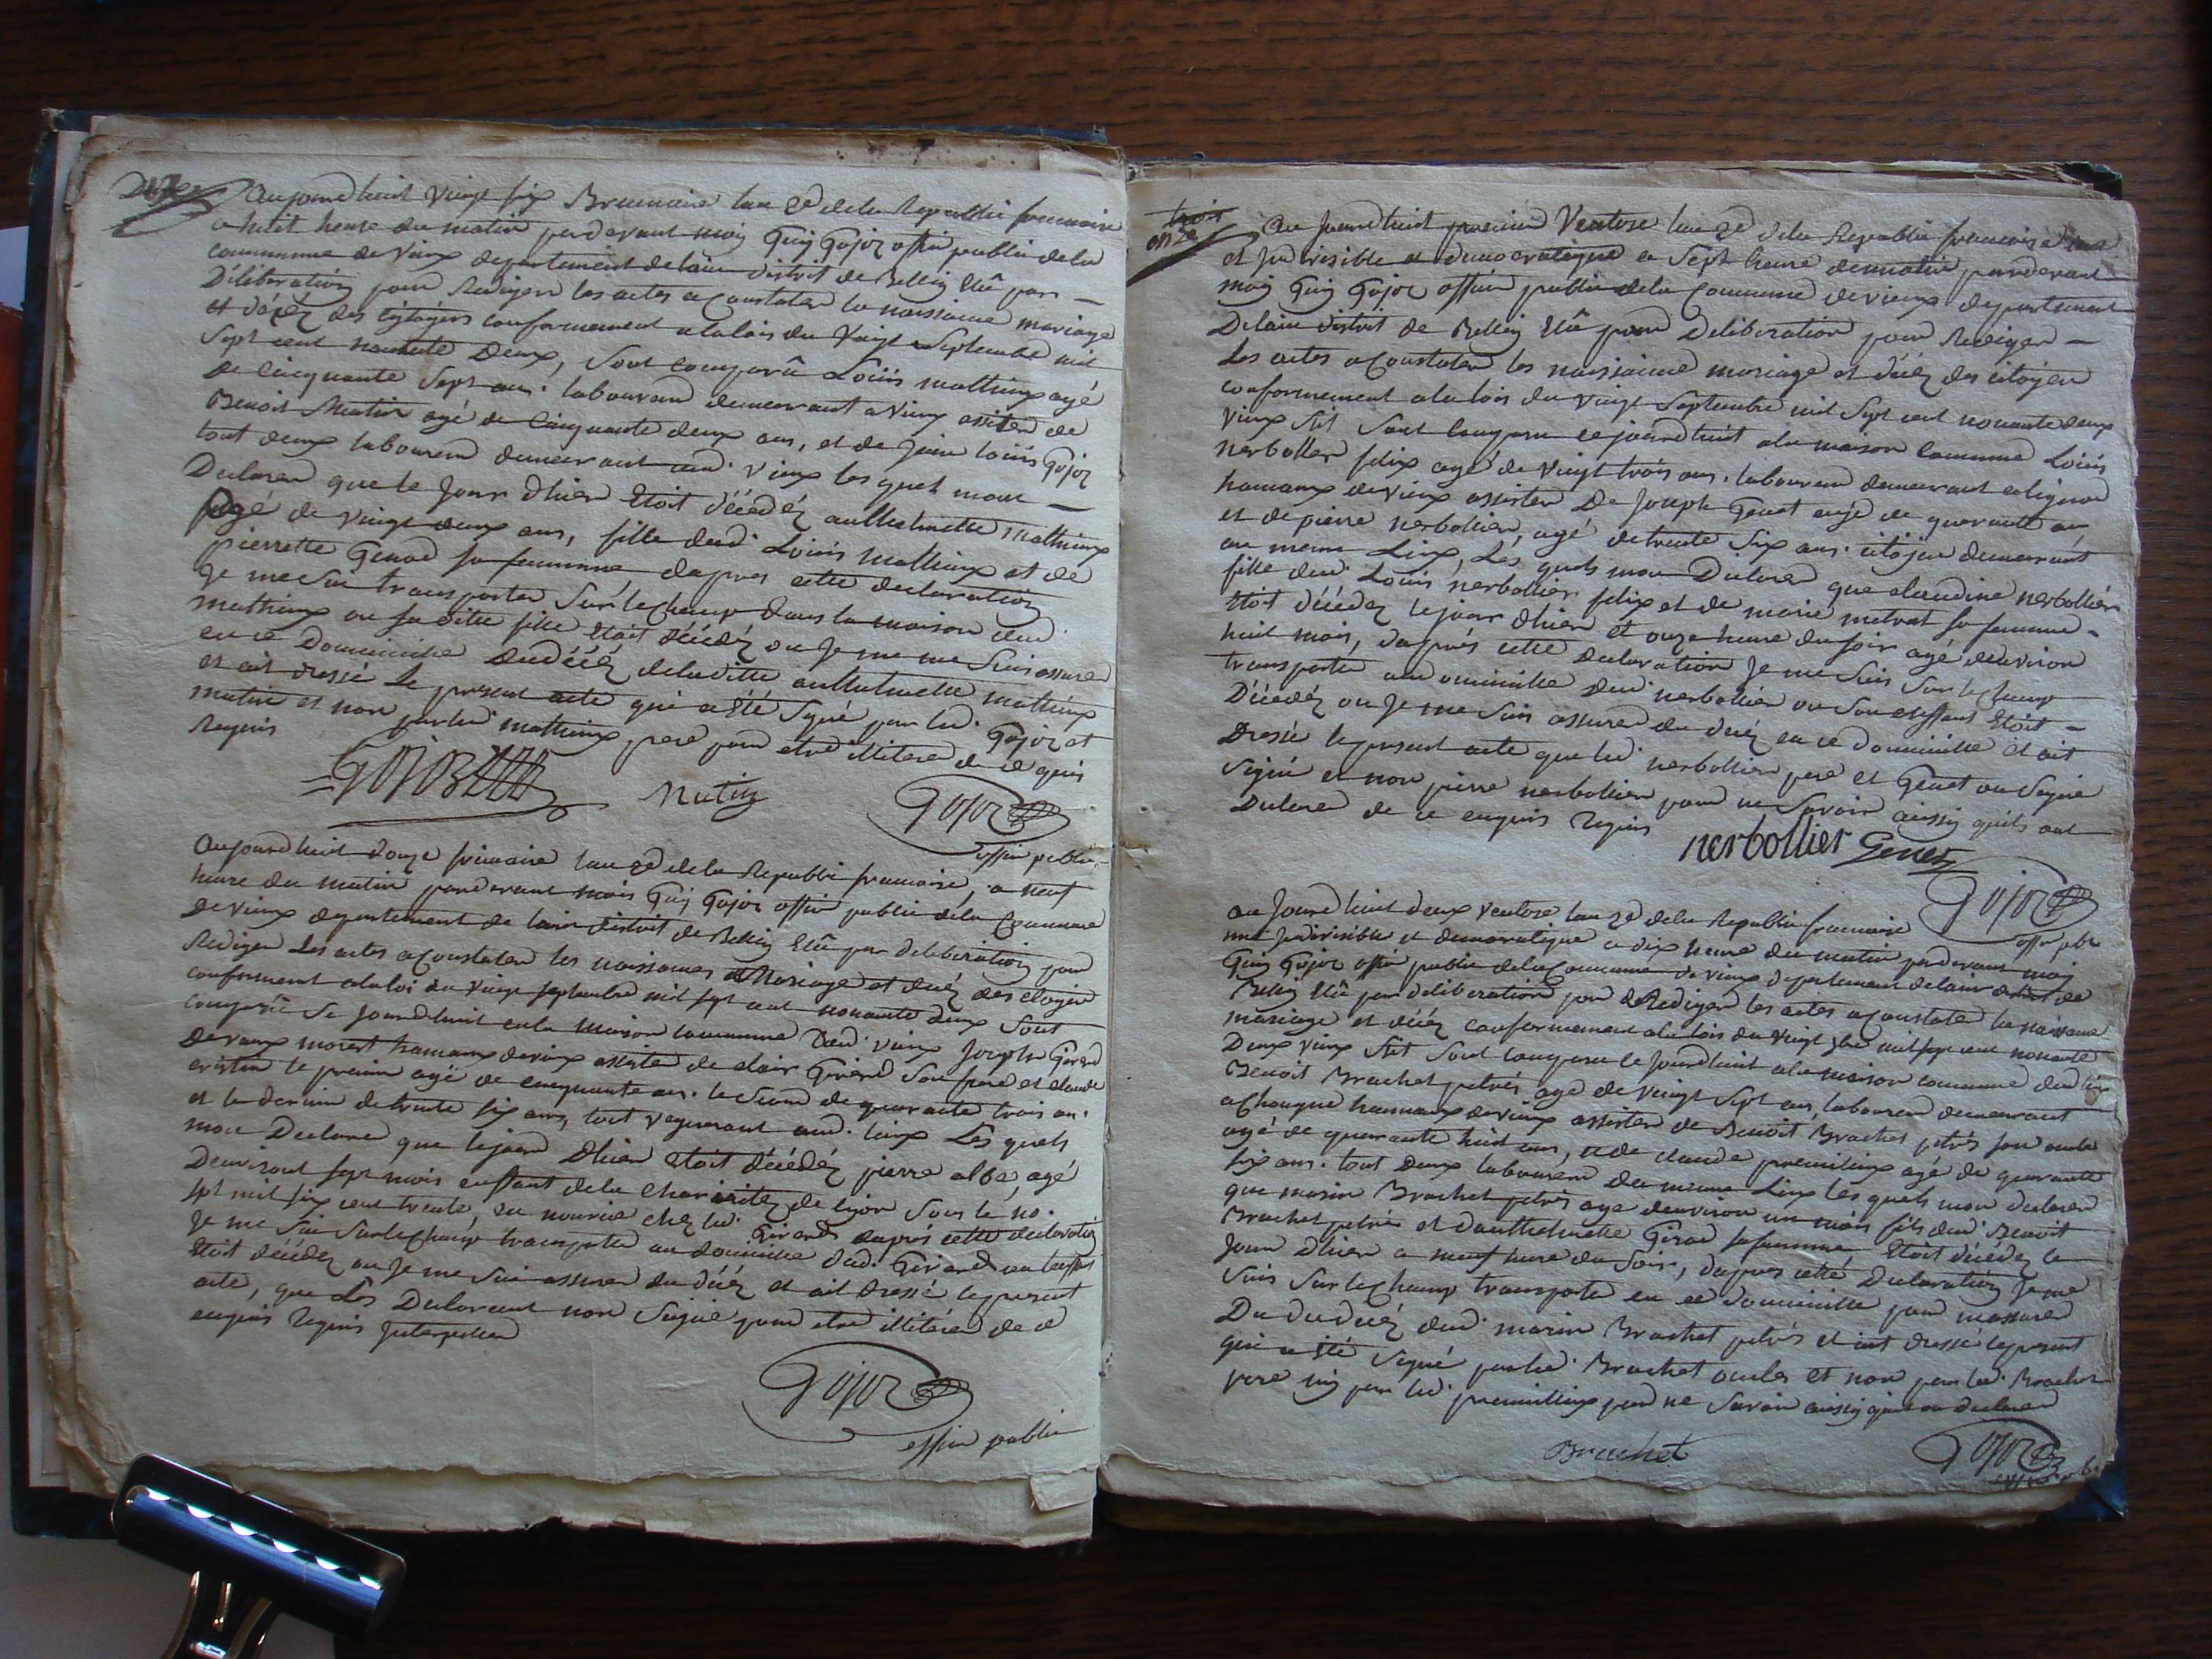 Deux
aujourdhuit vingt six Brumaire lan 2e dela Republi francaise
a huit heure du matin pardevant moy Guy Gojoz offier public dela
commune de vieux departement delain distrit de Belley Elû par
Déliberation pour Rediger les actes a Constater la naissance mariage
et décéz des citoyens conformement a la lois du vingt septembre mil
sept cent nonente deux, sont comparû Loüis mathieux agé
de cinquante sept ans. laboureur demeurant a vieux assister de
Benoit Mutin agé de cinquante deux ans, et de jean loüis Gojoz
tout deux laboureur demeurant aud. vieux les quels mont
Declarer que le jour dhier Etoit décédéz anthelmette mathieux
agé de vingt deux ans, fille dud. Loüis mathieux et de
pierrette Genod sa femme dapres cette declaration
je me sui transporter sur le champ dans la maison dud.
mathieux ou sa ditte fille Etait décédéz ou je me me suis assurer
en ce Domicile dudécéz deladitte anthelmette mathieux
et ait dressé le present acte qui a été signé par led. Gojoz et
mutin et non par led. mathieux pere pour etre illitere de ce quis
Requis
Gojoz Mutin Gojoz
offier public
aujourdhuit douze frimaire lan 2e dela Republi francaise, a neuf
heure du matin pardevant mois Guy Gojoz offier public dela Commune
de vieux departement de lain distrit de Belley Elû par deliberation pour
Rediger les actes a Constater les naissances Mariage et décéz des citoyen
conforment ala loi du vingt septembre mil sept cent nonante deux sont
comparû se jourdhuit enla maison commune dud. vieux joseph Girerd
devaux morert hamaux devieux assiste de clair Girerd son frere et claude
cristin le premier agé de cinquante an. le segond de quarante trois an.
et le dernier de trente six ans, tout vegnerant aud. lieux Les quels
mon Declare que lejour dhier etoit décédéz pierre albe, agé
Denviront sept mois enffant dela Charitéz de lion sous le no.
sept mil six cent trente, en nourice chez led. Girerd dapres cette declaration
je me sui surlechamp transporter au domicille dud. Girerd ou lenffant
Etoit décédez ou je me sui assurer du décéz et ait dressé le present
acte, que Les Declarant non signe pour etre illitéré de ce
enquis Requis jnterpeller
Gojoz
offier public
trois
onze
Au jourdhuit premier Ventose lan 2e dela Republi francaise une
et jndivisible et democratique a sept heure dumatin pardevant
moy Guy Gojoz offier public dela Commune devieux departement
Delain distrit de Belley Elû pour Deliberation pour Rediger
Les actes a Constater les naissance mariage et décéz des citoyen
conformement a la lois du vingt septembre mil sept cent nonante deux
vieux stil sont comparu cejourdhuit ala maison commune Loüis
nerbollier felix agé de vingt trois ans. laboureur demeurant a lignod
hamaux devieux assister De joseph Genet agé de quarante an
et de pierre nerbollier, agé detrente six ans. citoyen demeurant
au meme Lieux, Les quels mon Declarer que claudine nerbollier
fille dud. Louis nerbollier felix et de marie metrat sa femme
Etoit décédez le jour dhier et onze heure du soir agé denviron
huit mois, dapres cette declaration je me suis sur le champ
transporter au domicille dud. nerbollier ou son enffans Etoit
Décedéz ou je me suis assurer du décéz en ce domicille et ait
Dressé le present acte que led. nerbollier pere et Genet on signé
signé et non pierre nerbollier pour ne savoir ainsy quils ont
Declarer de ce enquis Requis
nerbollier Genet
Gojoz
offier pbli
au jourdhuit deux ventose lan 2e dela Republi francaise
une jndivisible et democratique a dix heure du matin pardevant moy
Guy Gojoz offier public dela Commune de vieux departement delain distrit de
Belley Elû par deliberation pour Rediger les actes a constate la naissance
mariage et décéz conformement ala lois du vingt 7bre mil sept cent nonante
Deux vieux stil sont comparu ce jourdhuit ala maison commune dud. lieux
Benoit Brachet petrés agé de vingt sept ans, laboureur demeurant
a Chongne hamaux devieux assister de Benoit Brachet petrés son oncle
agé de quarante huit ans, et de claude premillieux agé de quarante
six ans. tout deux laboureur du meme Lieux les quels mon declarer
que marin Brachet petrés age denviron un mois fils dud. Benoit
Brachet petrés et danthelmette Girod safemme Etoit décédéz le
jour dhier a neuf heure du soir, dapres cette Declaration je me
suis sur le champ transporte en ce domicille pour massurer
Du dudécéz dud. marin Brachet petrés et ait dressé lepresent
qui a Eté signé parled. Brachet oncles et non par led. Brachet
pere niy par led. premillieux pour ne savoir ainsy quil on declarer
Brachet
Gojoz